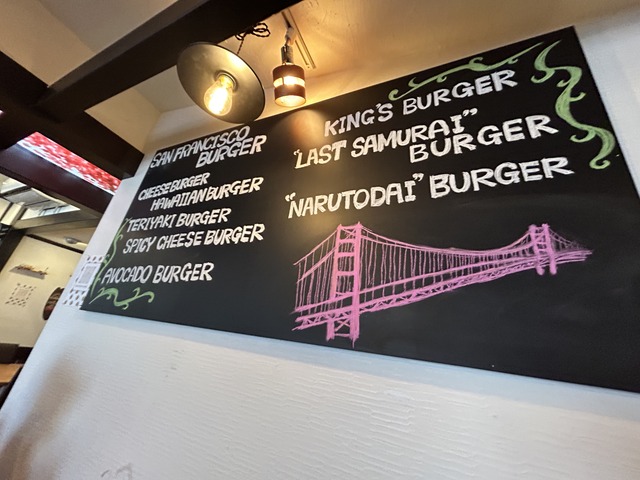 SAN FRANCISCO
BURGER
CHEESE BURGER
HAWAIIAN BURGER
TERIYAKI BURGER
SPICY CHEESE BURGER
AVOCADO BURGER
KING'S BURGER
"LAST SAMURAI"
BURGER
"NARUTODAI" BURGER